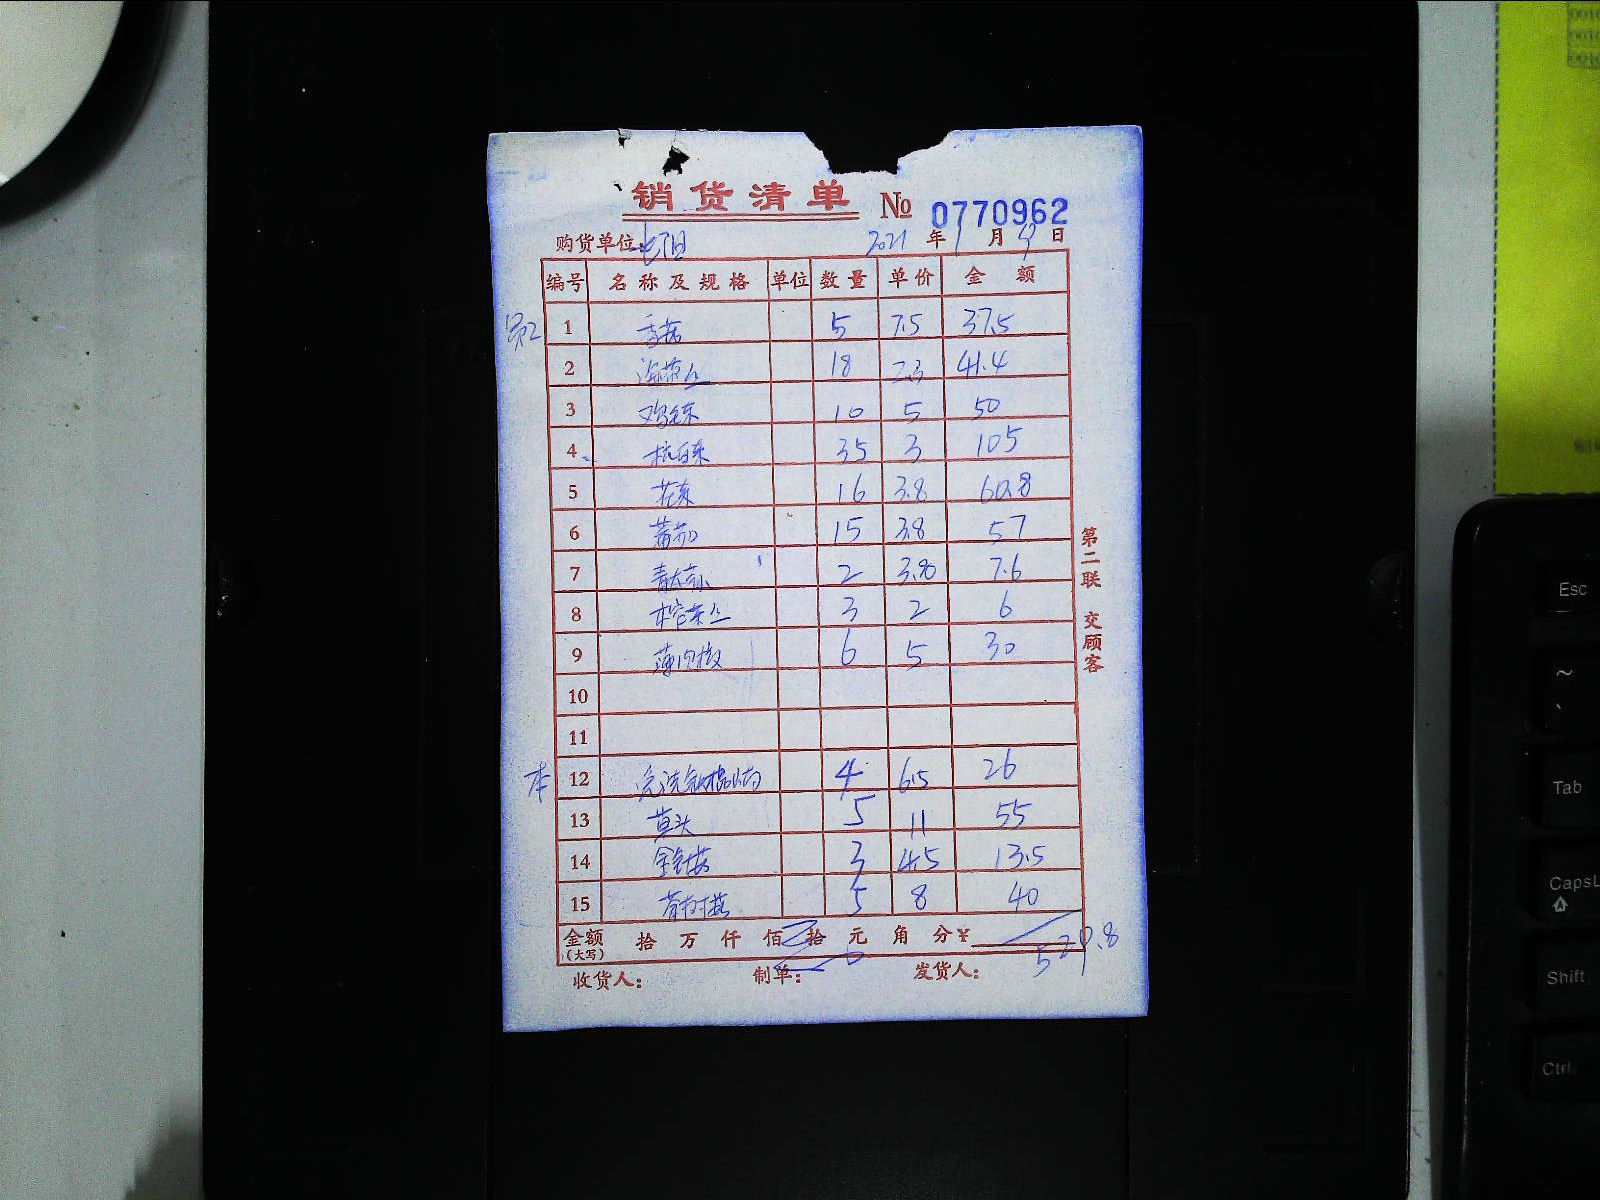 销货清单 № 0770962
购货单位: 2021 年 1 月 9 日
编号 名称及规格 单位 数量 单价 金额
1 香菇 5 7.5 37.5
2 海带丝 18 2.3 41.4
3 鸡毛菜 10 5 50
4 杭白菜 35 3 105
5 花菜 16 3.8 60.8
6 蕃茄 15 3.8 57
7 青大蒜 2 3.80 7.6
8 榨菜丝 3 2 6
9 薄肉椒 6 5 30
10
11
本 12 4 6.5 26
13 5 11 55
14 金针菇 3 4.5 13.5
15 5 8 40
金额(大写) 拾 万 仟 佰 拾 元 角 分 ¥ 529.8
收货人: 制单: 发货人:
第二联 交顾客
Esc
~
`
Tab
Caps
Shift
Ctrl